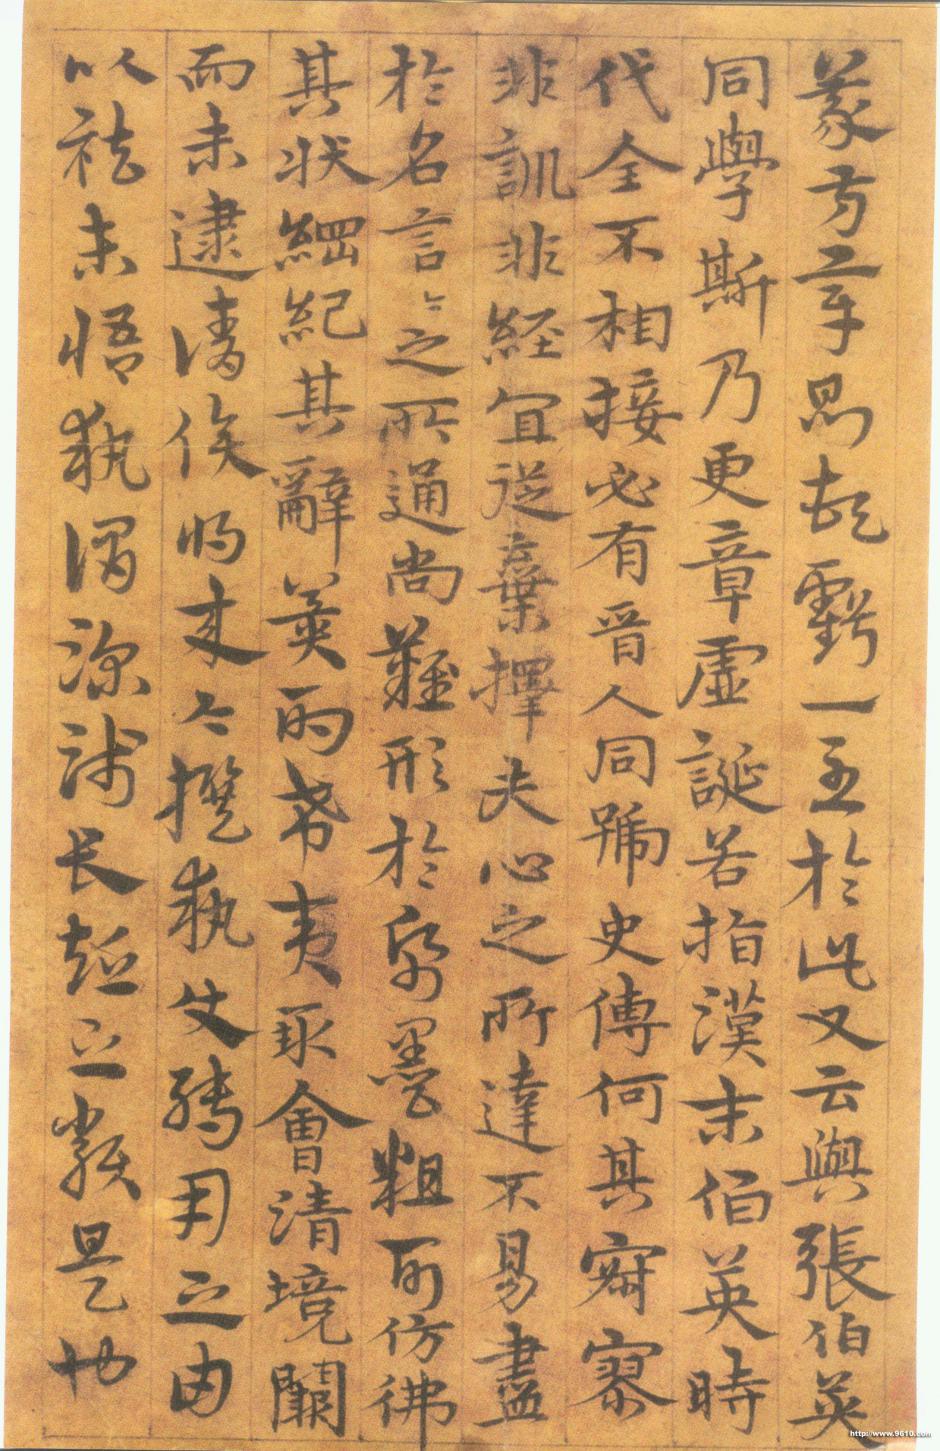 義方章則頓虧一至於此又云與張伯英
同學斯乃更章虛誕若指漢末伯英時
代全不相接必有晉人同號史傳何其寂寥
非訓非經宜從棄擇夫心之所達不易盡
於名言〻之所通尚難形於紙墨粗可仿彿
其狀綱紀其辭冀酌希夷取會清境闕
而未逮請俟將來今撰執使轉用之由
以祛未悟執謂深淺長短之類是也
http://www.9610.com